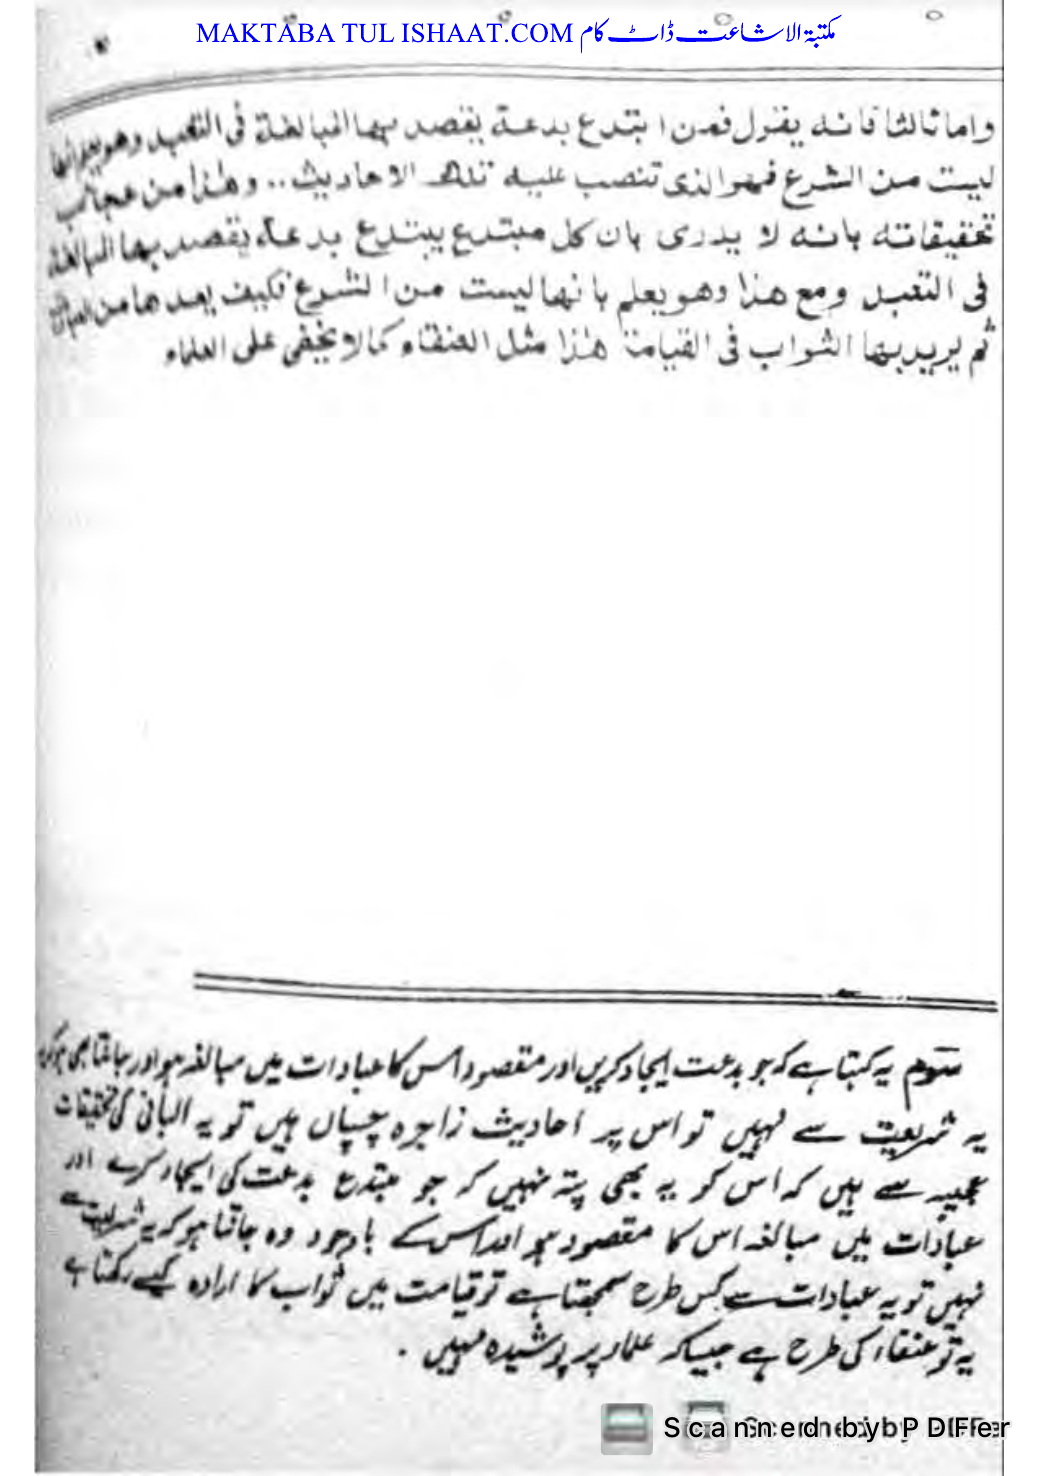 MAKTABA TUL ISHAAT.COM مکتبۃ الاشاعت ڈاٹ کام
واما ثالثا فانه يقول فمن ابتدع بدعة يقصد بها المبالغة فى التعبد وهو يعلم انها
ليست من الشرع فهو الذى تنصب عليه تلك الاحاديث .. وهذا من عجائب
تحقيقاته بانه لا يدرى بان كل مبتدع يبتدع بدعة يقصد بها المبالغة
فى التعبد ومع هذا وهو يعلم بانها ليست من الشرع فكيف يعدها من
ثم يريد بها الثواب فى القيامة هذا مثل العنقاء كما لا يخفى على العلماء
سوم یہ کہتا ہے کہ جو بدعت ایجاد کریں اور مقصود اس کا عبادات میں مبالغہ ہو اور جانتا بھی ہو کہ
یہ شریعت سے نہیں تو اس پر احادیث زاجرہ چسپاں ہیں تو یہ البانی کی تحقیقات
عجیبہ سے ہیں کہ اس کو یہ بھی پتہ نہیں کہ جو مبتدع بدعت کی ایجاد کرے اور
عبادات میں مبالغہ اس کا مقصود ہو اور اس کے باوجود وہ جانتا ہو کہ یہ شریعت سے
نہیں تو یہ عبادات سے کس طرح سمجھتا ہے تو قیامت میں ثواب کا ارادہ کیسے رکھتا ہے
یہ تو عنقاء کی طرح ہے جیسا کہ علماء پر پوشیدہ نہیں .